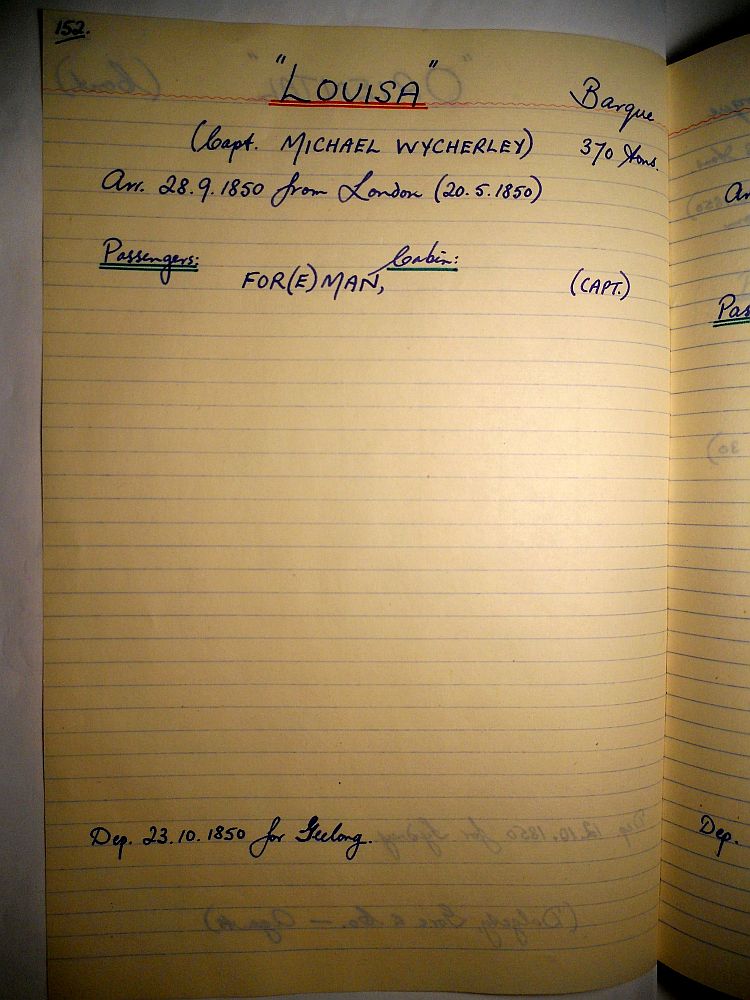 152.
"LOUISA" Barque
(Capt. MICHAEL WYCHERLEY) 370 Tons.
Arr. 28.9.1850 from London (20.5.1850)
Passengers: Cabin:
FOR(E)MAN, (CAPT.)
Dep. 23.10.1850 for Geelong.
Ar
Pas
Dep.